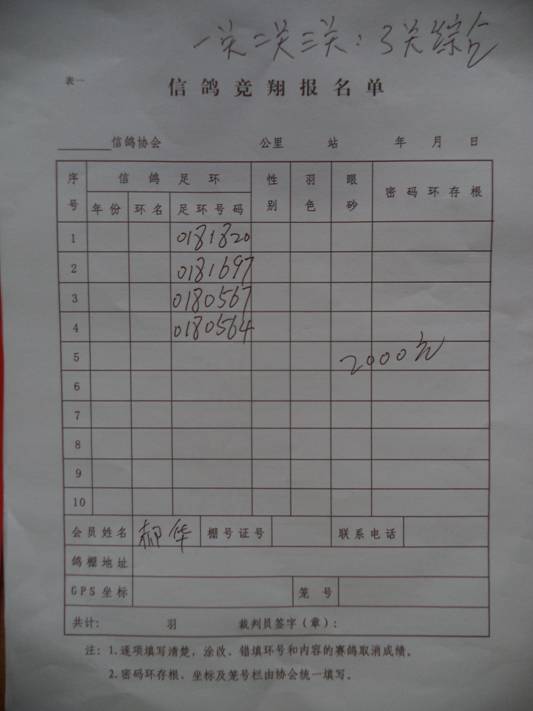 一关二关三关:3关综合
表一
信鸽竞翔报名单
信鸽协会 公里 站 年 月 日
序号 信鸽足环 性别 羽色 眼砂 密码环存根
年份 环名 足环号码
1 0181820
2 0181697
3 0180567
4 0180564
5 2000元
6
7
8
9
10
会员姓名 郝华 棚号证号 联系电话
鸽棚地址
GPS坐标 笼号
共计: 羽 裁判员签字(章):
注:1.逐项填写清楚,涂改、错填环号和内容的赛鸽取消成绩。
2.密码环存根、坐标及笼号栏由协会统一填写。